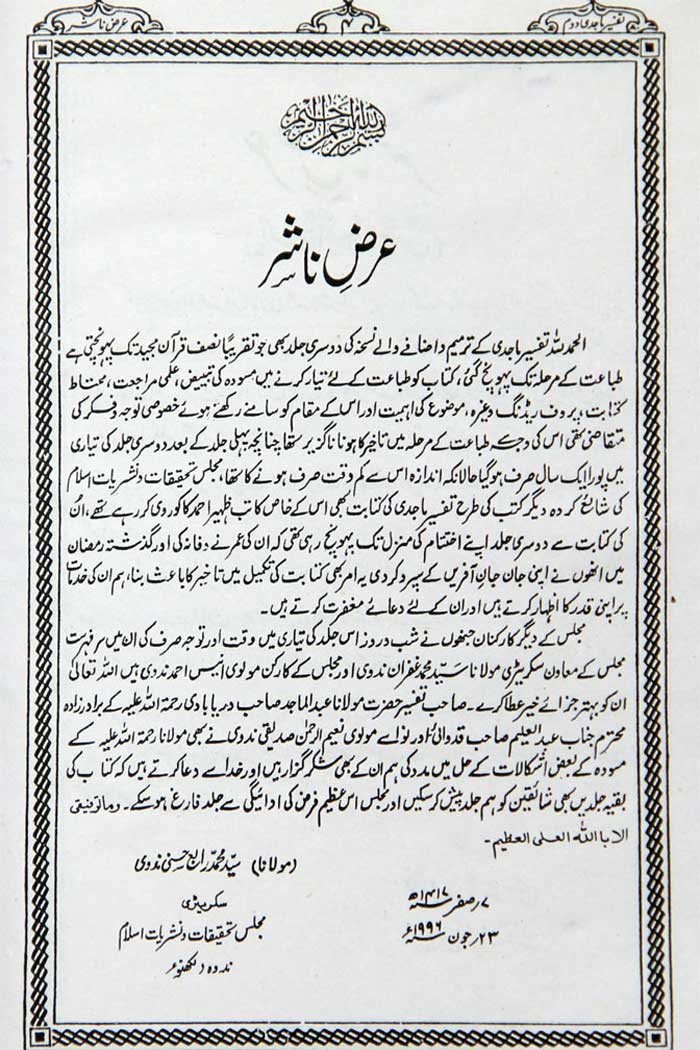 تفسیر ماجدی دوم
۴
عرض ناشر
بسم اللہ الرحمن الرحیم
عرضِ ناشر
الحمد للہ تفسیر ماجدی کے ترمیم و اضافے والے نسخہ کی دوسری جلد بھی جو تقریبًا نصف قرآن مجید تک پہونچتی ہے
طباعت کے مرحلہ تک پہونچ گئی، کتاب کو طباعت کے لئے تیار کرنے میں مسودہ کی تبییض، علمی مراجعت، محتاط
کتابت، پروف ریڈنگ وغیرہ، موضوع کی اہمیت اور اس کے مقام کو سامنے رکھتے ہوئے خصوصی توجہ و فکر کی
متقاضی تھی اس کی وجہ سے طباعت کے مرحلہ میں تاخیر کا ہونا ناگزیر تھا چنانچہ پہلی جلد کے بعد دوسری جلد کی تیاری
میں پورا ایک سال صرف ہوگیا حالانکہ اندازہ اس سے کم وقت صرف ہونے کا تھا، مجلس تحقیقات و نشریات اسلام
کی شائع کردہ دیگر کتب کی طرح تفسیر ماجدی کی کتابت بھی اس کے خاص کاتب ظہیر احمد کاکوروی کر رہے تھے، اُن
کی کتابت سے دوسری جلد اپنے اختتام کی منزل تک پہونچ رہی تھی کہ ان کی عمر نے وفا نہ کی اور گذشتہ رمضان
میں انھوں نے اپنی جان جانِ آفریں کے سپرد کردی یہ امر بھی کتابت کی تکمیل میں تاخیر کا باعث بنا، ہم ان کی خدمات
پر اپنی قدر کا اظہار کرتے ہیں اور ان کے لئے دعائے مغفرت کرتے ہیں۔
مجلس کے دیگر کارکنان جنھوں نے شب و روز اس جلد کی تیاری میں وقت اور توجہ صرف کی ان میں سرفہرست
مجلس کے معاون سکریٹری مولانا سید محمد غفران ندوی اور مجلس کے کارکن مولوی انیس احمد ندوی ہیں اللہ تعالیٰ
ان کو بہتر جزائے خیر عطا کرے۔ صاحب تفسیر حضرت مولانا عبدالماجد صاحب دریابادی رحمۃ اللہ علیہ کے برادر زادہ
محترم جناب عبدالعلیم صاحب قدوائی اور نواسے مولوی نعیم الرحمٰن صدیقی ندوی نے بھی مولانا رحمۃ اللہ علیہ کے
مسودہ کے بعض اشکالات کے حل میں مدد کی ہم ان کے بھی شکر گزار ہیں اور خدا سے دعا کرتے ہیں کہ کتاب کی
بقیہ جلدیں بھی شائقین کو ہم جلد پیش کرسکیں اور مجلس اس عظیم فرض کی ادائیگی سے جلد فارغ ہوسکے۔ وما توفیقی
الا باللہ العلی العظیم۔
(مولانا) سید محمد رابع حسنی ندوی
سکریٹری
مجلس تحقیقات و نشریات اسلام
ندوہ۔ لکھنؤ
۷ صفر ۱۴۱۷ھ
۲۳ جون ۱۹۹۶ء